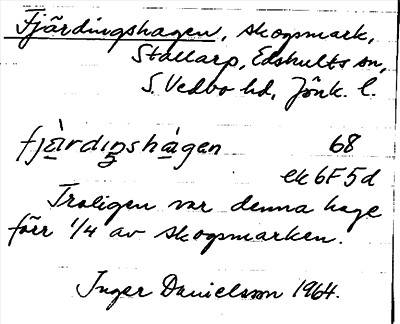 Fjärdingshagen, skogsmark,
Stallarp, Edshults sn,
S. Vedbo hd, Jönk. l.
fjà̱rdiŋshá̱gen 68
ek 6F5d
Troligen var denna hage
förr 1/4 av skogsmarken.
Inger Danielsson 1964.